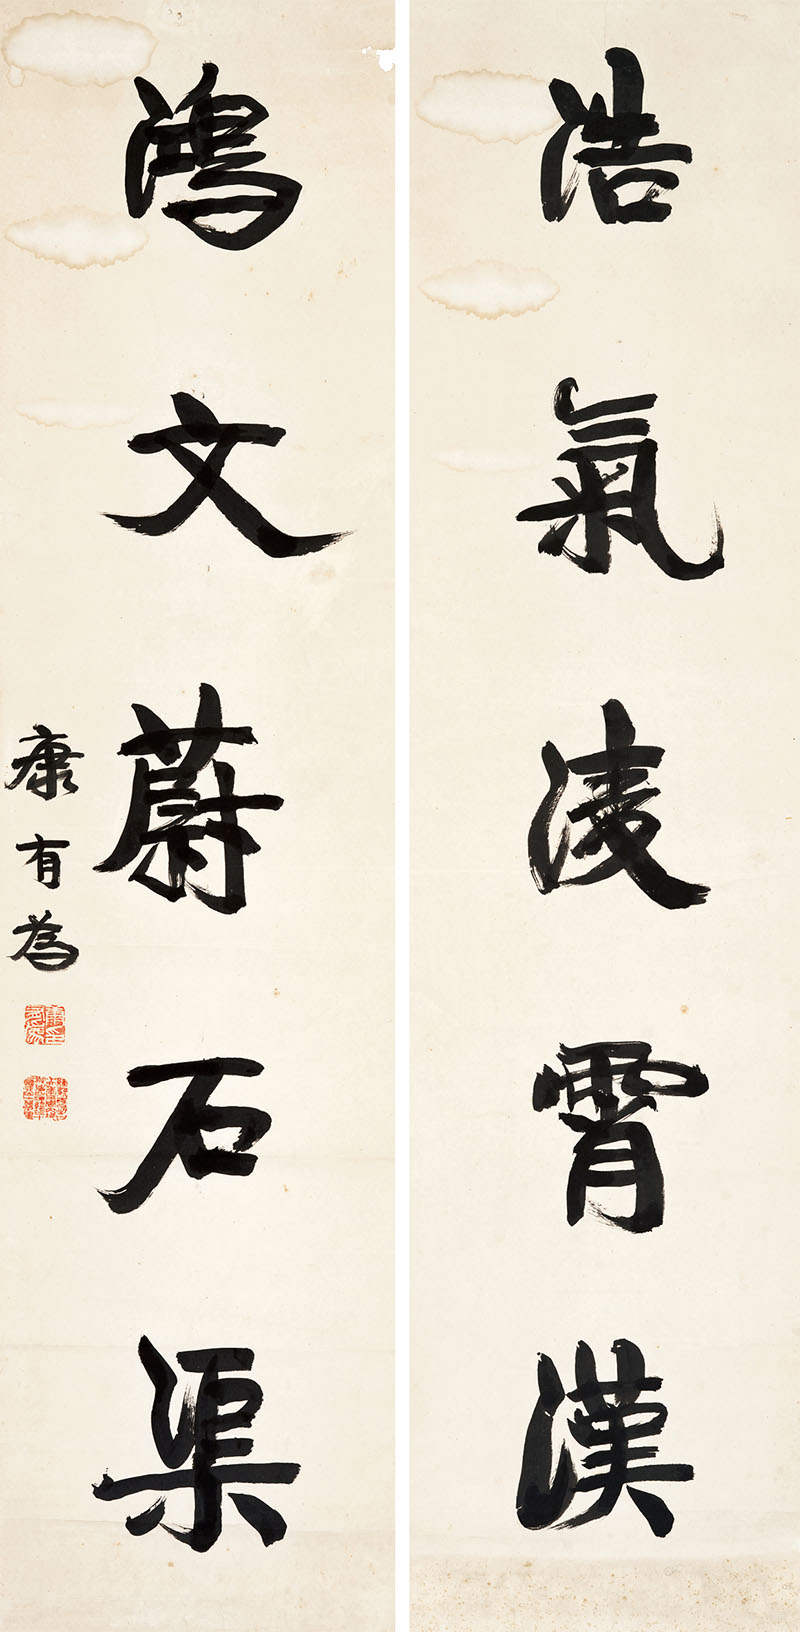 浩氣淩霄漢
鴻文蔚石渠
康有為